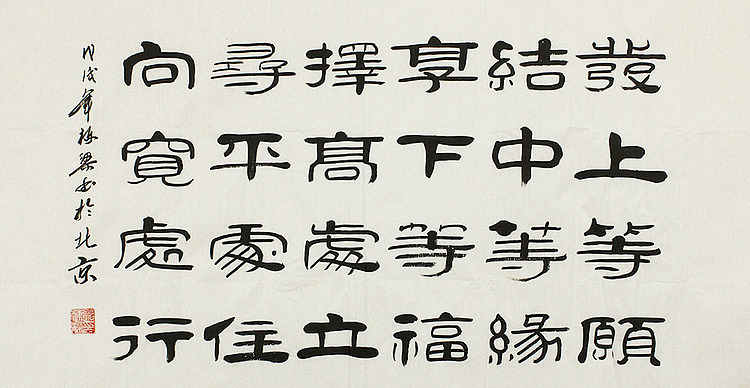 發上等願
結中等緣
享下等福
擇高處立
尋平處住
向寬處行
戊戌年 梁書於北京